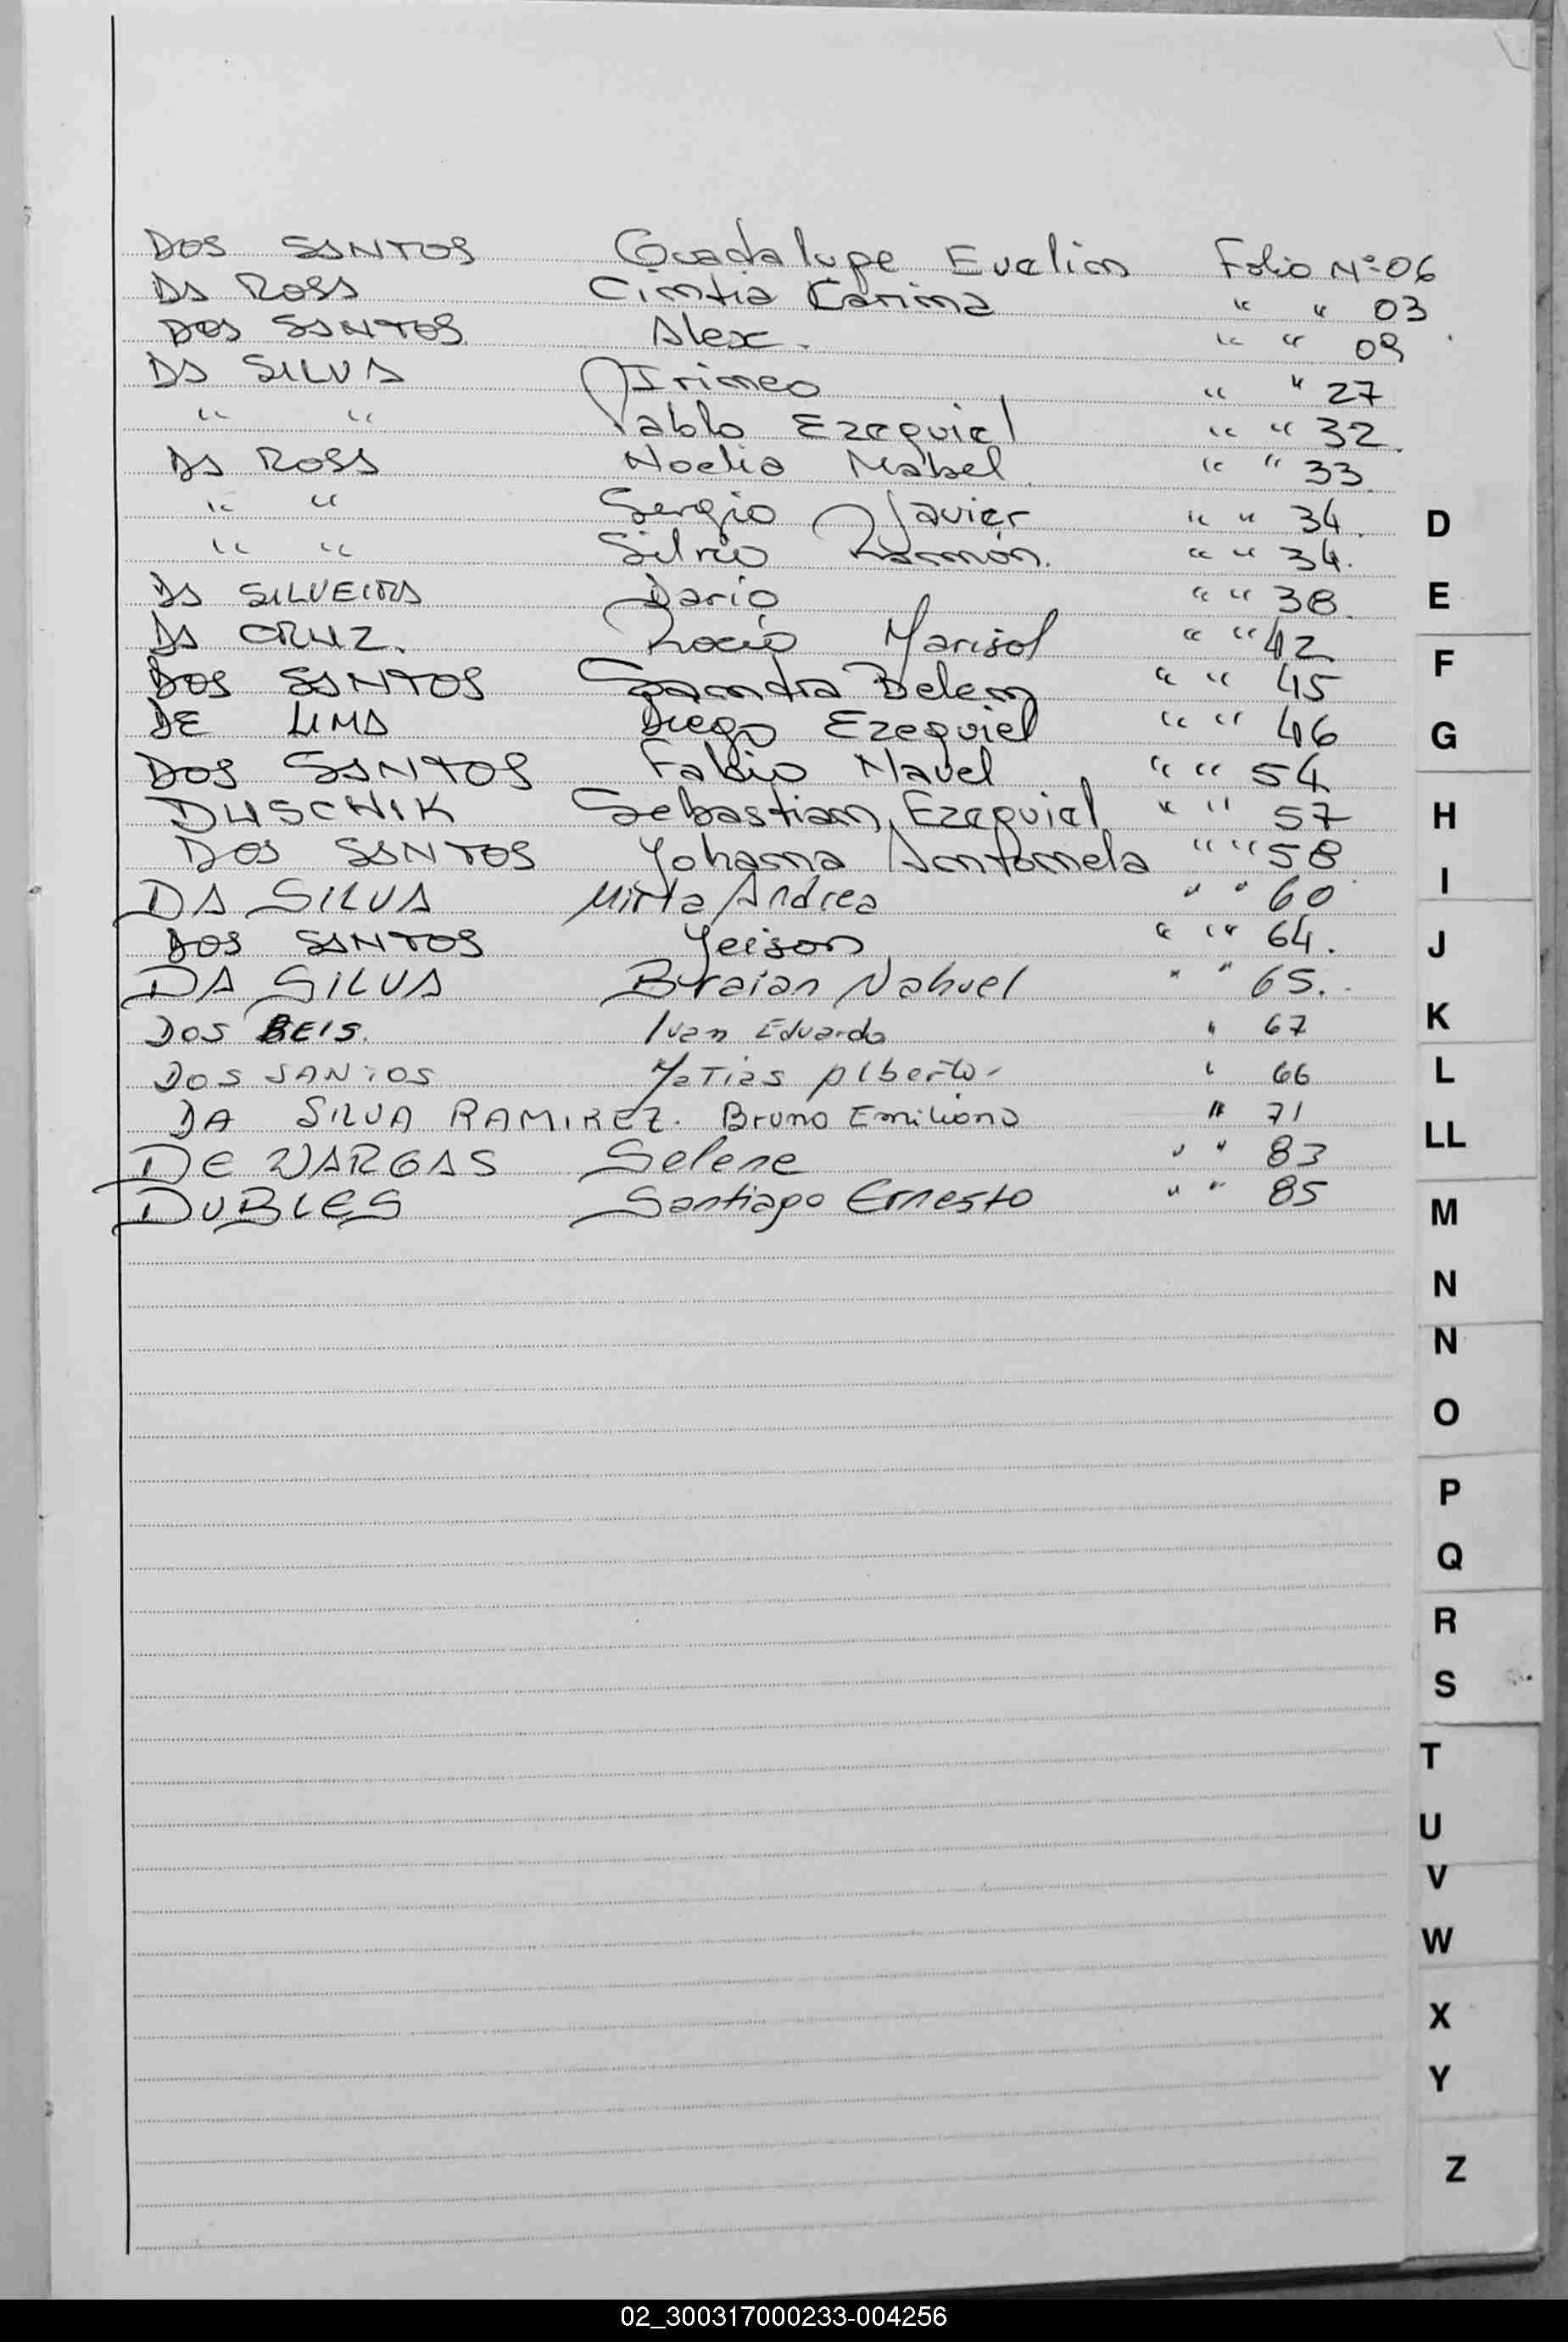 DOS SANTOS Guadalupe Evelin Folio Nº 06
DA ROSA Cintia Karina " " 03
DOS SANTOS Alex. " " 09
DA SILVA Irineo " " 27
" " Pablo Ezequiel " " 32
DA ROSA Noelia Mabel " " 33
" " Sergio Javier " " 34
" " Silvio Ramón. " " 34.
DA SILVEIRA Dario " " 38.
DA CRUZ. Rocio Marisol " " 42
DOS SANTOS Sandra Belen " " 45
DE LIMA Diego Ezequiel " " 46
DOS SANTOS Fabio Nauel " " 54
DUSCHIK Sebastian Ezequiel " " 57
DOS SANTOS Yohana Antonela " " 58
DA SILVA Mirta Andrea " " 60
DOS SANTOS Yeison " " 64.
DA SILVA Braian Nahuel " " 65.
DOS REIS. Ivan Eduardo " 67
DOS SANTOS Matias Alberto- " 66
DA SILVA RAMIREZ. Bruno Emiliano " 71
DE VARGAS Selene " " 83
DUBLES Santiago Ernesto " " 85
D
E
F
G
H
I
J
K
L
LL
M
N
N
O
P
Q
R
S
T
U
V
W
X
Y
Z
02_300317000233-004256